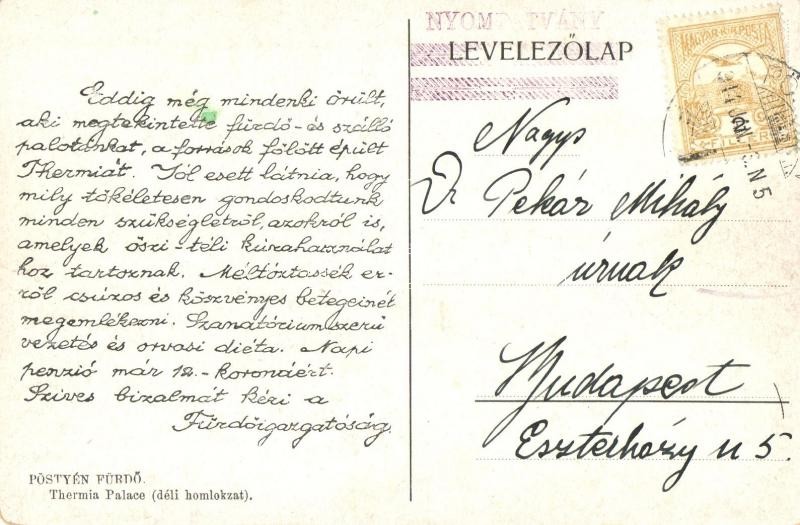 Eddig még mindenki örült,
aki megtekintette fürdő- és szálló
palotánkat, a források fölött épült
Thermiát. Jól esett látnia, hogy
mily tökéletesen gondoskodtunk
minden szükségletről, azokról is,
amelyek őszi-téli kúrahasználat
hoz tartoznak. Méltóztassék er-
ről csúzos és köszvényes betegeinét
megemlékezni. Szanatóriumszerű
vezetés és orvosi diéta. Napi
penzió már 12.- koronáért.
Szives bizalmát kéri a
Fürdőigazgatóság.
PÖSTYÉN FÜRDŐ.
Thermia Palace (déli homlokzat).
NYOMTATVÁNY
LEVELEZŐLAP
MAGYAR KIR. POSTA
Nagys
Dr Pekár Mihály
úrnak
Budapest
Eszterházy u 5.